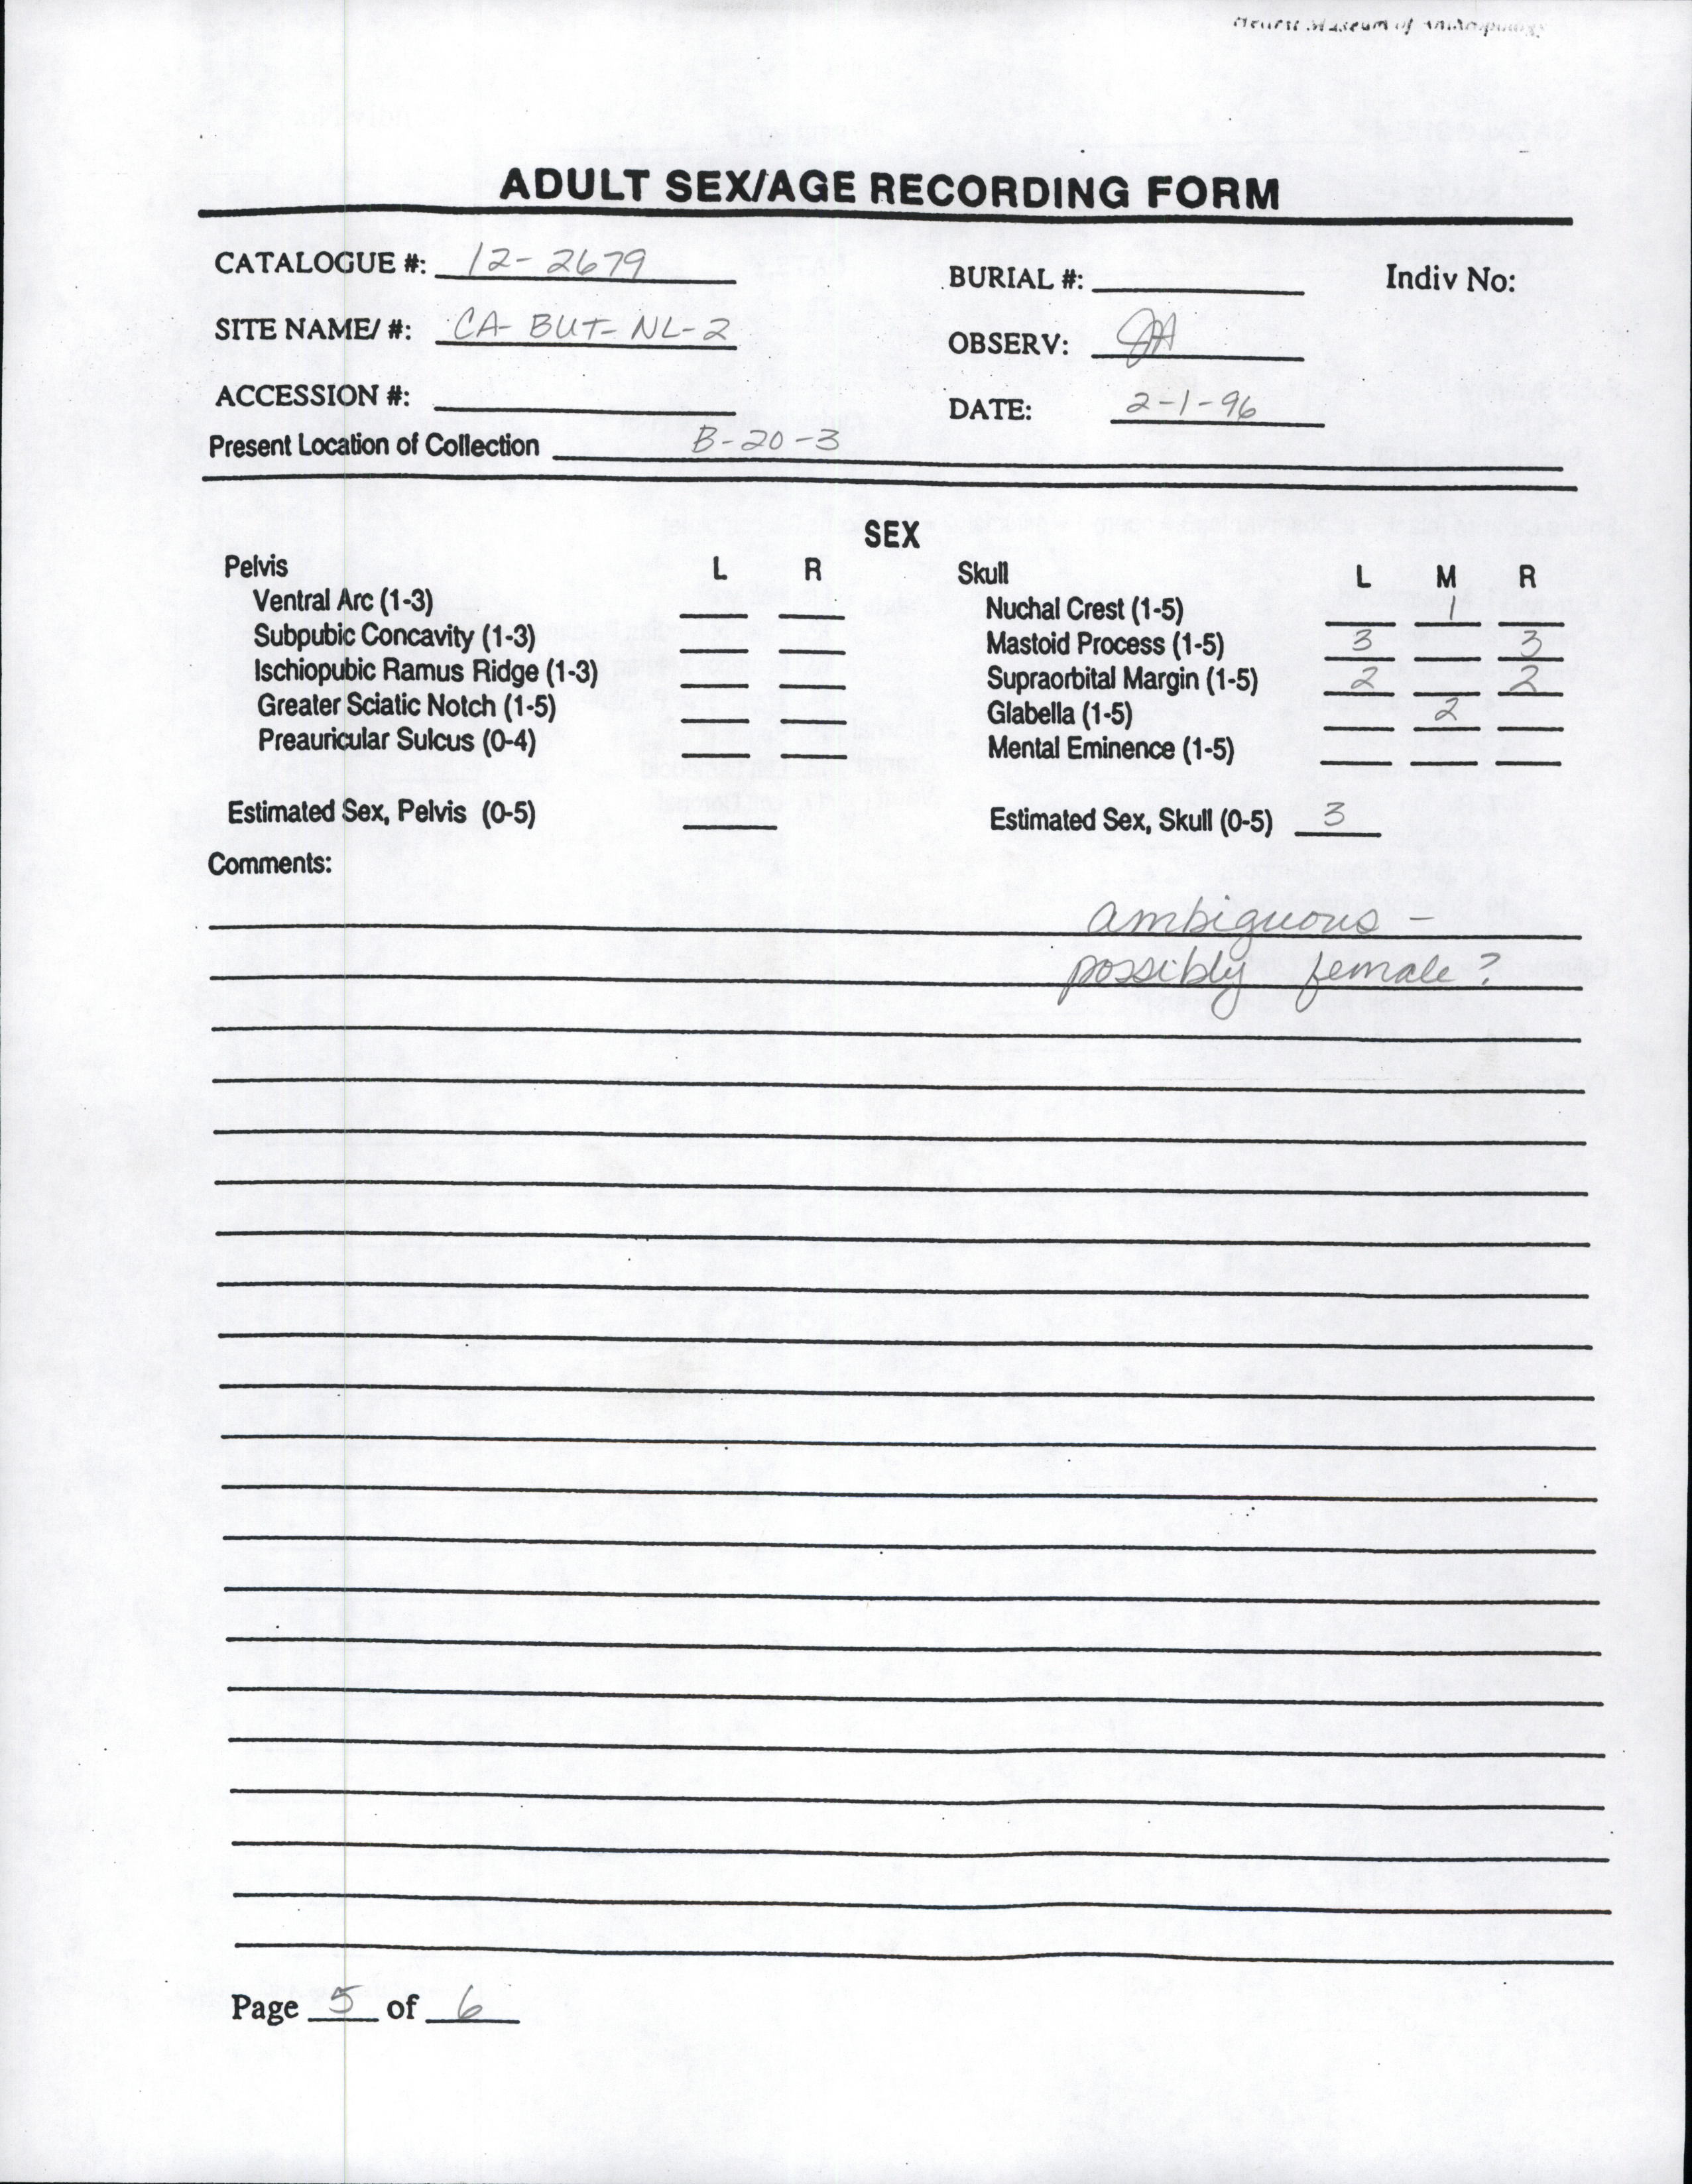 ADULT SEX/AGE RECORDING FORM
CATALOGUE #: 12-2679
BURIAL #:
Indiv No:
SITE NAME/ #: CA-BUT-NL-2
OBSERV: JA
ACCESSION #:
DATE: 2-1-96
Present Location of Collection B-20-3
SEX
Pelvis L R
Ventral Arc (1-3)
Subpubic Concavity (1-3)
Ischiopubic Ramus Ridge (1-3)
Greater Sciatic Notch (1-5)
Preauricular Sulcus (0-4)
Estimated Sex, Pelvis (0-5)
Skull L M R
Nuchal Crest (1-5) 1
Mastoid Process (1-5) 3 3
Supraorbital Margin (1-5) 2 2
Glabella (1-5) 2
Mental Eminence (1-5)
Estimated Sex, Skull (0-5) 3
Comments:
ambiguous -
possibly female?
Page 5 of 6